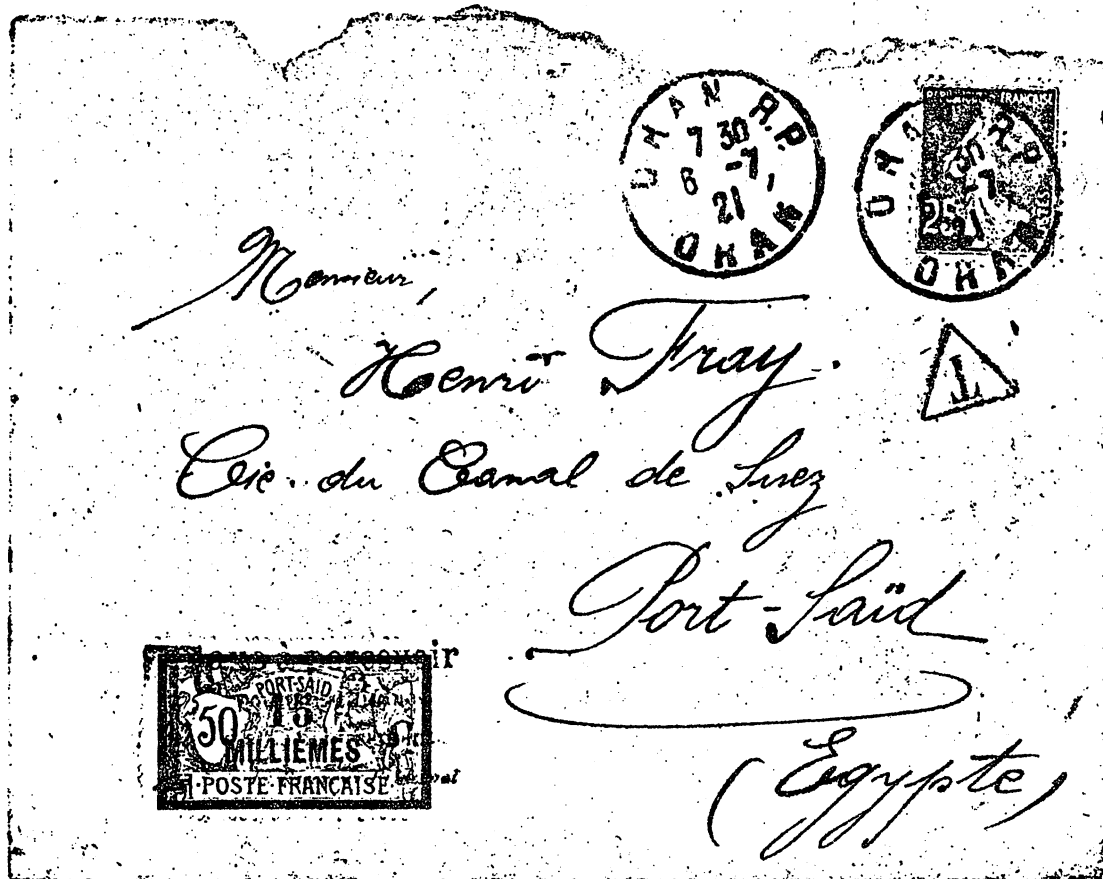 ORAN R.P.
7 30
6 -7
21
ORAN
ORAN R.P.
-7
21
ORAN
25
T
Monsieur,
Henri Fray.
Cie. du Canal de Suez
Port-Saïd
(Egypte)
à percevoir
PORT-SAID
50
15
MILLIÈMES
POSTE FRANÇAISE